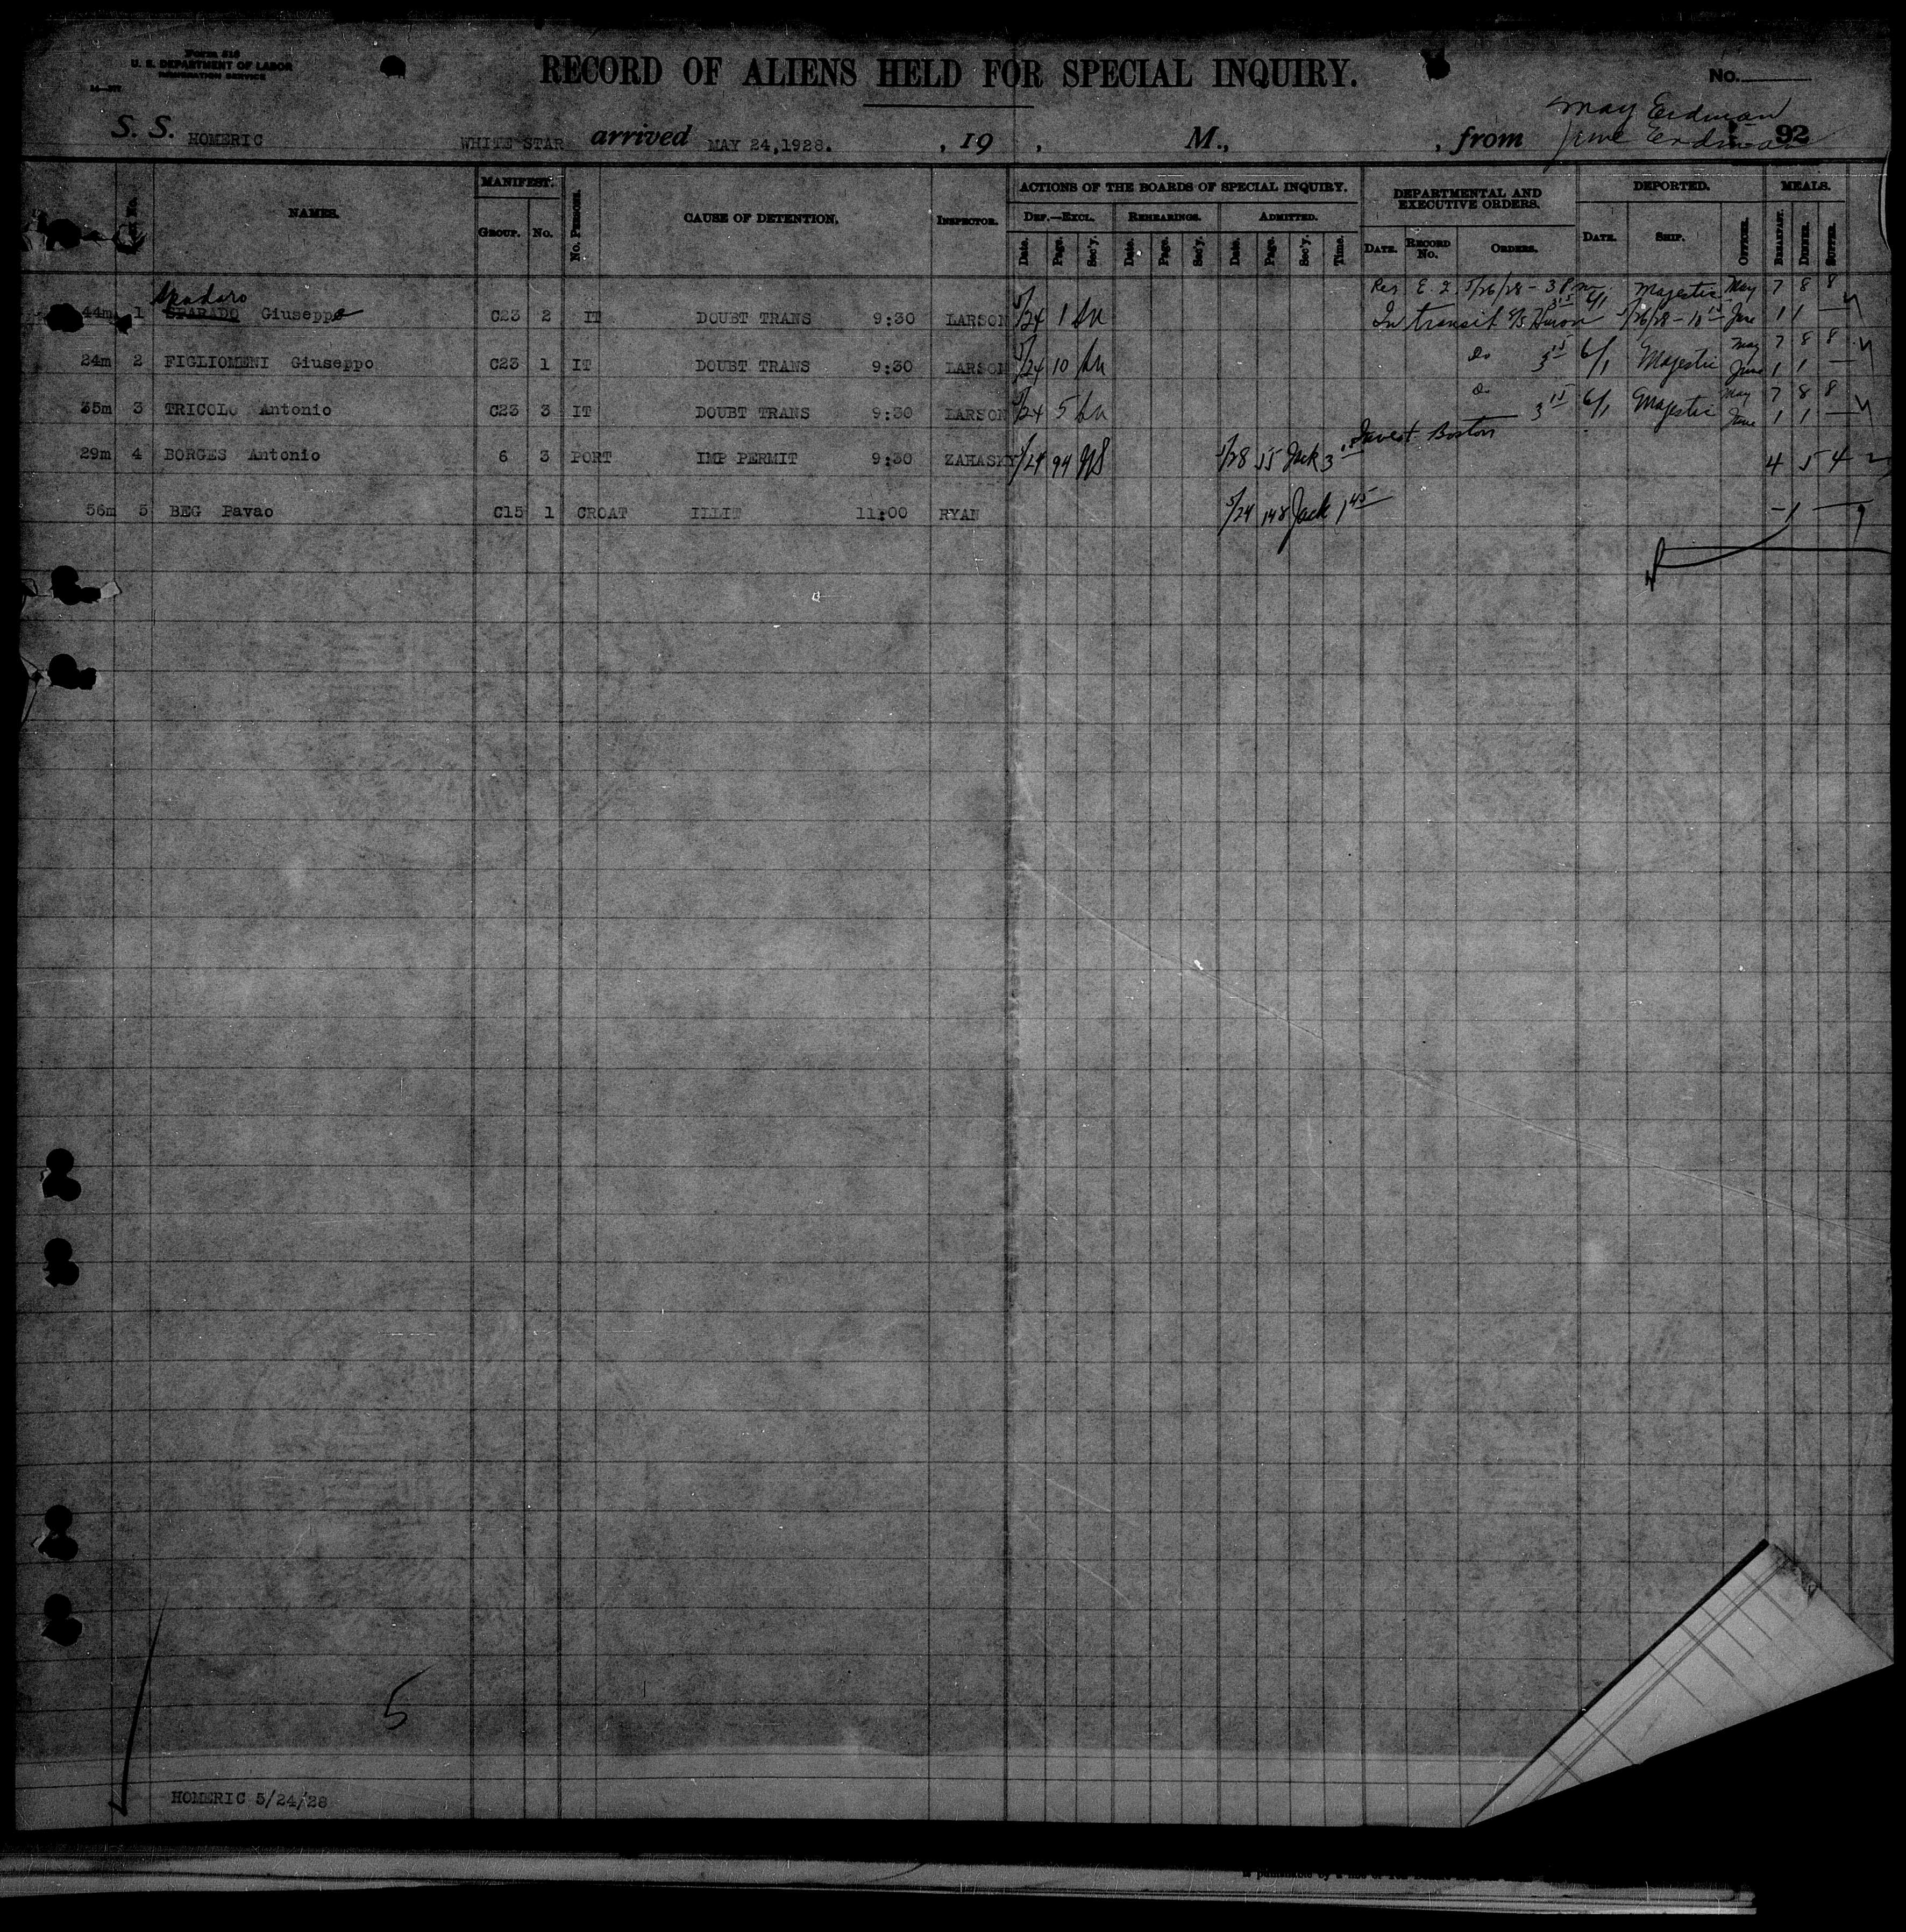 Form 518
U. S. DEPARTMENT OF LABOR
IMMIGRATION SERVICE
RECORD OF ALIENS HELD FOR SPECIAL INQUIRY.
No.
May Erdman
S. S. HOMERIC WHITE STAR arrived MAY 24,1928. , 19 , M., , from June Erdman 92
MANIFEST. ACTIONS OF THE BOARDS OF SPECIAL INQUIRY. DEPARTMENTAL AND EXECUTIVE ORDERS. DEPORTED. MEALS.
DEF.—EXCL. REHEARINGS. ADMITTED.
No. NAMES. GROUP. No. No. PERSONS. CAUSE OF DETENTION. INSPECTOR. Date. Page. Sec'y. Date. Page. Sec'y. Date. Page. Sec'y. Time. DATE. RECORD No. ORDERS. DATE. SHIP. OFFICER. BREAKFAST. DINNER. SUPPER.
Spadaro Res E. I. 5/26/28 - 3 P.m. Majestic May 7 8 8
44m 1 SPARADO Giuseppe C23 2 IT DOUBT TRANS 9:30 LARSON 5/24 1 In transit S/S Huron 5/26/28 - 10 15 June 1 1 —
May 7 8 8
24m 2 FIGLIOMENI Giuseppo C23 1 IT DOUBT TRANS 9:30 LARSON 5/24 10 Do 3 15 6/1 Majestic June 1 1 —
May 7 8 8
35m 3 TRICOLO Antonio C23 3 IT DOUBT TRANS 9:30 LARSON 5/24 5 Do 3 15 6/1 Majestic June 1 1 —
Invest. Boston
29m 4 BORGES Antonio 6 3 PORT IMP PERMIT 9:30 ZAHASKY 5/24 94 5/28 55 Jack 3 4 5 4
56m 5 BEG Pavao C15 1 CROAT ILLIT 11:00 RYAN 5/24 148 Jack 1 45 — 1 —
5
HOMERIC 5/24/28